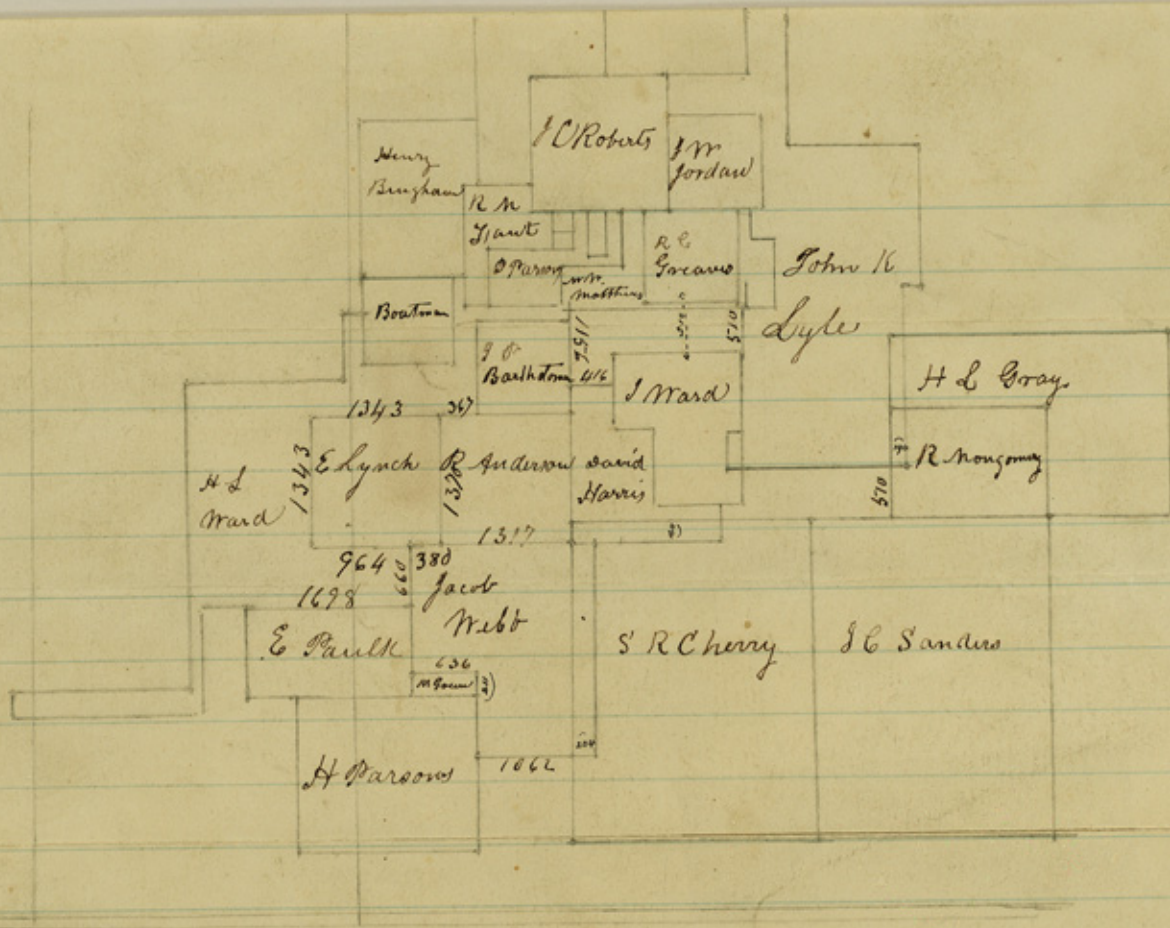 J C Roberts
J W
Jordan
Henry
Bingham
R M
O Parson
W W
Matthews
R C
Greaves
John K
Lyle
Boatman
1156
510
J
416
J Ward
H L Gray
R Mongomery
510
1343
367
1343
E Lynch
1370
R Anderson
David
Harris
H L
Ward
1317
964
380
660
1698
Jacob
Webb
E Paulk
636
M Green
S R Cherry
J C Sanders
H Parsons
1062
204